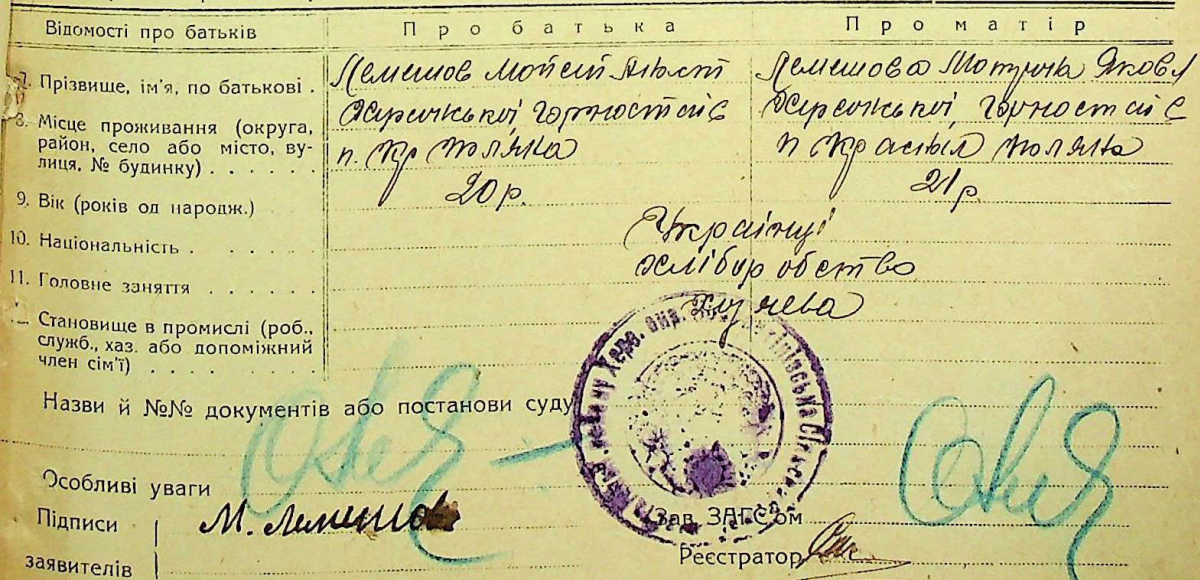 Відомості про батьків
Про батька
Про матір
7. Прізвище, ім'я, по батькові .
Лемешов Мойсей
Лемешова Мотрина Яковл
8. Місце проживання (округа,
район, село або місто, ву-
лиця, № будинку) . . . . . .
Херсонської, Горностаїв
п. Кр Поляна
Херсонської, Горностаїв
п Красный Поляна
9. Вік (років од народж.)
20 р.
21 р.
10. Національність . . . . . .
Українці
11. Головне заняття . . . . . .
хліборобство
Становище в промислі (роб.,
служб., хаз. або допоміжний
член сім'ї) . . . . . . . .
Назви й №№ документів або постанови суду
Особливі уваги
Підписи
заявителів
М. Лемешов
Зав. ЗАГС'ом
Реєстратор